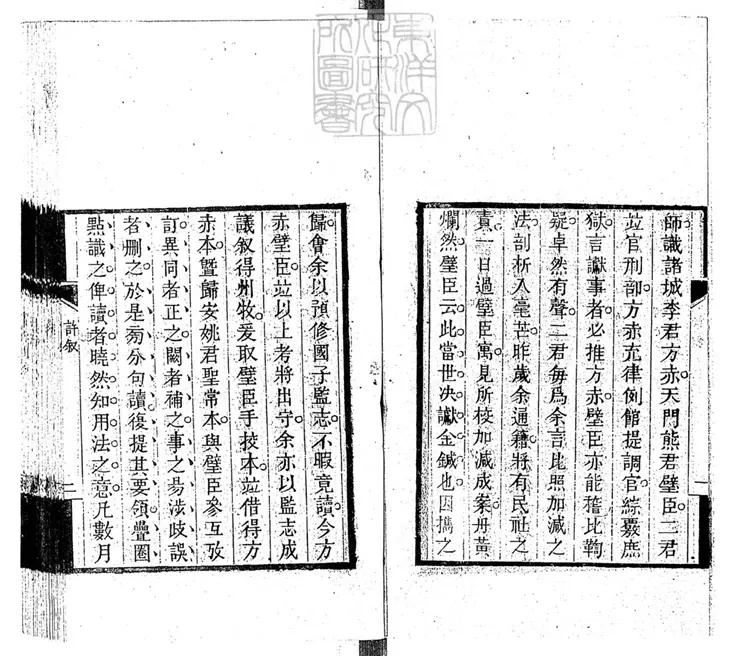 東洋文
化研究
所圖書
師議諸城李君方赤天門熊君璧臣二君
竝官刑部方赤充律例館提調官綜覈庶
獄言讞事者必推方赤璧臣亦能稽比鞫
疑卓然有聲二君每爲余言比照加減之
法剖析入毫芒昨歲余通籍將有民社之
責一日過璧臣寓見所校加減成案丹黃
爛然璧臣云此當世决讞金鍼也因攜之
歸會余以預修國子監志不暇竟讀今方
赤璧臣竝以上考將出守余亦以監志成
議叙得州牧爰取璧臣手挍本竝借得方
赤本曁歸安姚君聖常本與璧臣參互攷
訂異同者正之闕者補之事之昜涉歧誤
者刪之於是刕分句讀復提其要領疊圈
點識之俾讀者曉然知用法之意凡數月
許叙
二